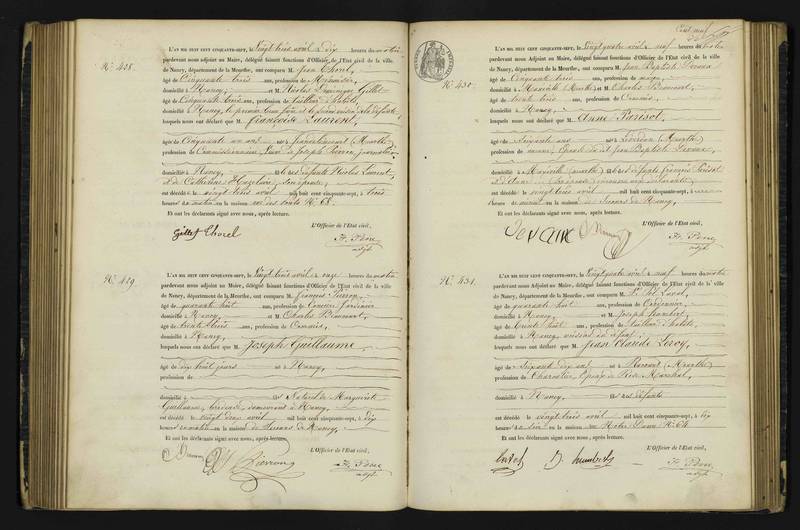 N° 428.
L'AN MIL HUIT CENT CINQUANTE-SEPT, le Vingt trois avril à dix heures du matin
pardevant nous Adjoint au Maire, délégué faisant fonctions d'Officier de l'Etat civil de la ville
de Nancy, département de la Meurthe, ont comparu M. Jean Chorel,
âgé de Cinquante trois ans, profession de Menuisier,
domicilié à Nancy, et M Nicolas Dominique Gillet
âgé de Cinquante trois ans, profession de tailleur d'habits,
domicilié à Nancy, le premier beau frère et le second voisin de la défunte,
lesquels nous ont déclaré que M Françoise Laurent,
âgée de Cinquante un ans née à (Meurthe)
profession de Commissionnaire, Veuve de Joseph Pierron, journalier,
domicilié à Nancy, fille des défunts Nicolas Laurent,
et de Catherine son épouse,
est décédée le vingt trois avril mil huit cent cinquante-sept, à trois
heures du matin en la maison rue des ponts N° 68.
Et ont les déclarants signé avec nous, après lecture.
L'Officier de l'Etat civil,
Gillet Chorel
adjt.
N° 429.
L'AN MIL HUIT CENT CINQUANTE-SEPT, le Vingt trois avril à onze heures du matin
pardevant nous Adjoint au Maire, délégué faisant fonctions d'Officier de l'Etat civil de la ville
de Nancy, département de la Meurthe, ont comparu M. François Pierron,
âgé de quarante huit ans, profession de Jardinier
domicilié à Nancy, et M Charles
âgé de trente trois ans, profession de Commis,
domicilié à Nancy,
lesquels nous ont déclaré que M Joseph Guillaume
âgé de dix huit jours né à Nancy,
profession de
domicilié à fils Naturel de Marguerite
Guillaume, brodeuse, demeurant à Nancy,
est décédé le vingt deux avril mil huit cent cinquante-sept, à dix
heures du matin en la maison de Secours de Nancy,
Et ont les déclarants signé avec nous, après lecture.
L'Officier de l'Etat civil,
Pierron
adjt.
Cent neuf
N° 430.
L'AN MIL HUIT CENT CINQUANTE-SEPT, le Vingt quatre avril à neuf heures du matin
pardevant nous Adjoint au Maire, délégué faisant fonctions d'Officier de l'Etat civil de la ville
de Nancy, département de la Meurthe, ont comparu M. Jean Baptiste
âgé de Cinquante trois ans, profession de maçon,
domicilié à Maxéville (Meurthe) et M Charles
âgé de trente trois ans, profession de Commis,
domicilié à Nancy,
lesquels nous ont déclaré que M Anne Parisot,
âgée de Cinquante ans née à (Meurthe)
profession de Epouse du dit Jean Baptiste
domicilié à Maxéville (meurthe) fille des défunts François Parisot
et d'Anne
est décédée le vingt trois avril mil huit cent cinquante-sept, à
heures de en la maison de Secours de Nancy,
Et ont les déclarants signé avec nous, après lecture.
L'Officier de l'Etat civil,
adjt.
N° 431.
L'AN MIL HUIT CENT CINQUANTE-SEPT, le Vingt quatre avril à neuf heures du matin
pardevant nous Adjoint au Maire, délégué faisant fonctions d'Officier de l'Etat civil de la ville
de Nancy, département de la Meurthe, ont comparu M.
âgé de quarante huit ans, profession de Cordonnier
domicilié à Nancy, et M Joseph Humbert,
âgé de trente huit ans, profession de tailleur d'habits,
domicilié à Nancy, voisins du défunt,
lesquels nous ont déclaré que M Jean Claude Leroy,
âgé de Soixante dix ans né à (Meurthe)
profession de Charpentier, Epoux de
domicilié à Nancy, fils des défunts
est décédé le vingt trois avril mil huit cent cinquante-sept, à six
heures du soir en la maison rue Notre Dame N° 64
Et ont les déclarants signé avec nous, après lecture.
L'Officier de l'Etat civil,
humbert
adjt.